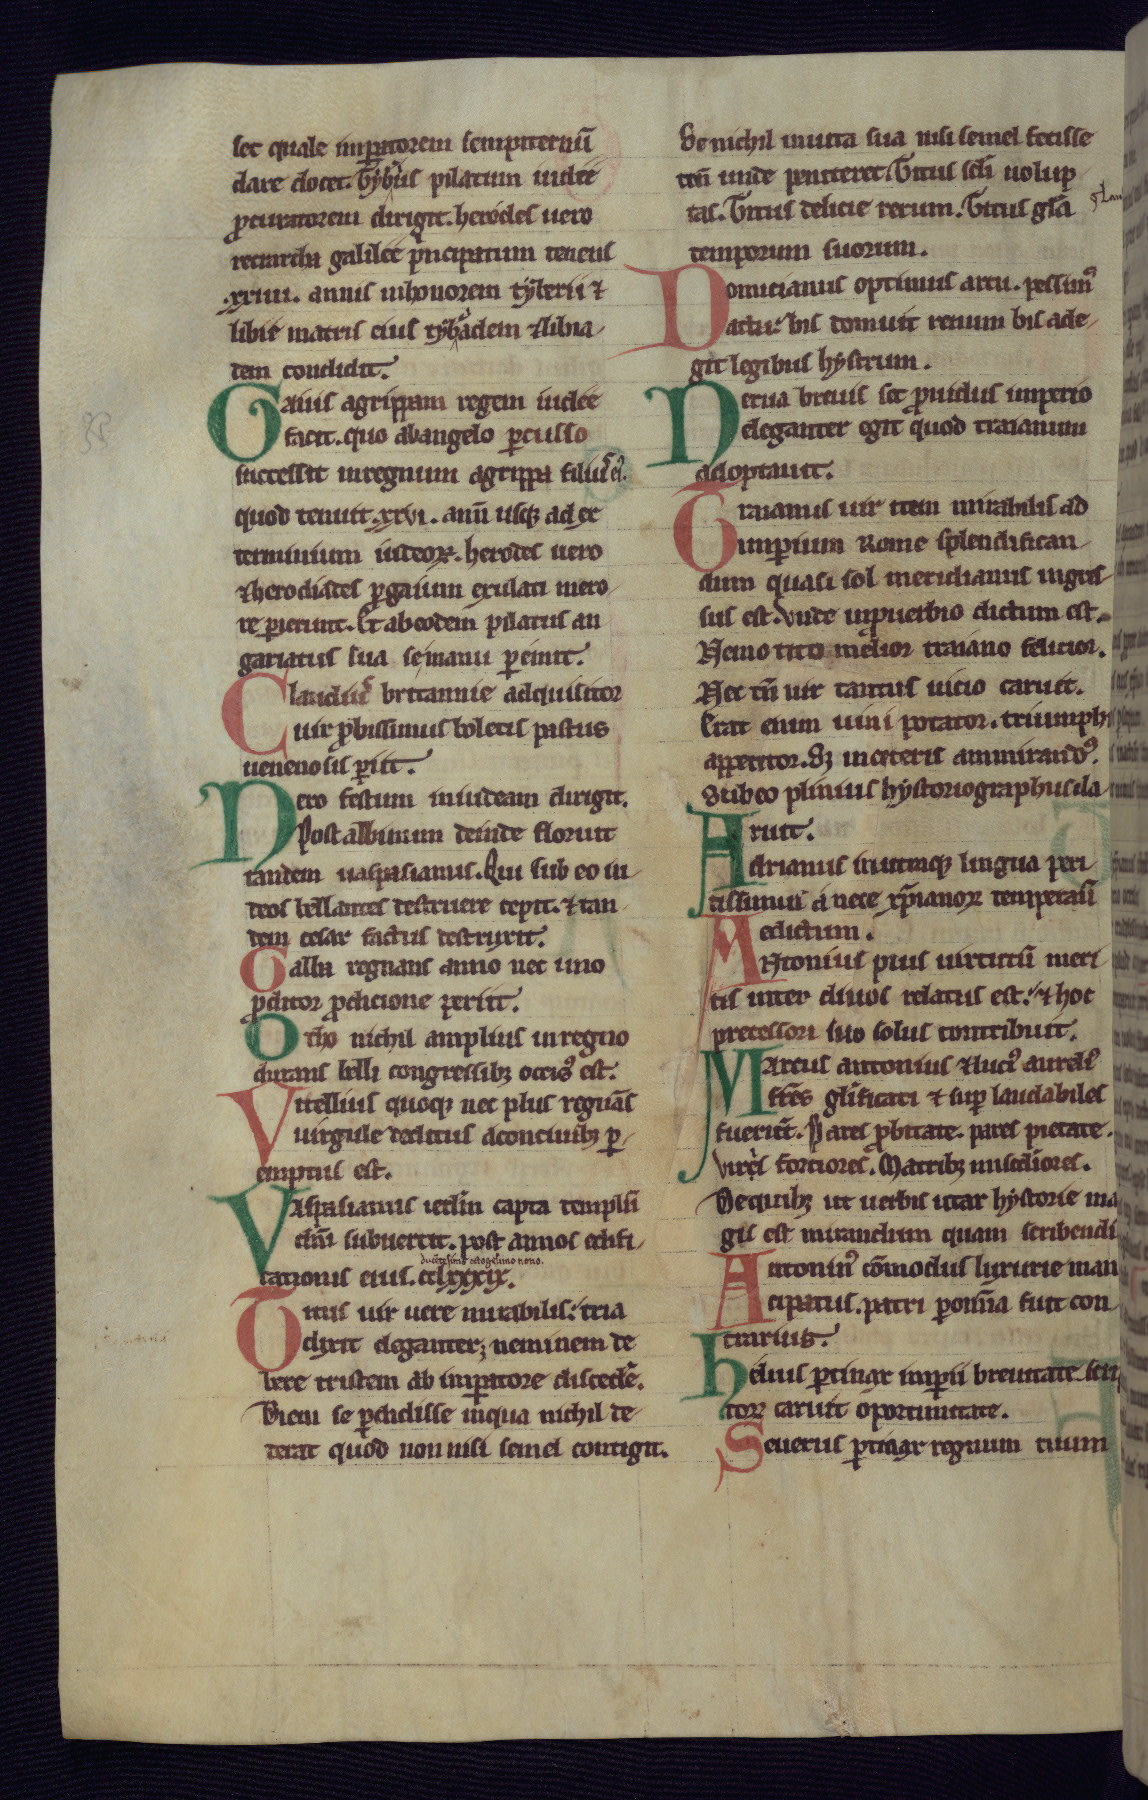 set quale impatorem sempiternū
dare docet. Tyb'ius pilatum iudeę
pcuratorem dirigit. herodes uero
tetrarcha galileę pncipatum tenens
.xxiiii. annis inhonorem tyberii ⁊
libię matris eius tybadem ⁊libia
dem condidit.
Gaius agrippam regem iudeę
facit. quo abangelo pcusso
successit inregnum agrippa filiꝰ eiꝰ.
quod tenuit .xxvi. annū usqꝫ ad ex
terminium iudeoꝝ. herodes uero
⁊herodiades pgaium exulati mero
re perierunt. Et abeodem pilatus an
gariatus sua semanu pemit.
Claudiꝰ britannie adquisitor
uir pbissimus boletis pastus
uenenosis piit.
Nero festum iniudeam dirigit.
Post albinum deinde floruit
tandem uaspasianus. Qui sub eo iu
deos bellantes destruere cepit. ⁊ tan
dem cesar factus destruxit.
Galba regnans anno nec uno
pditor pdicione periit.
Otho nichil amplius inregno
durans belli congressibꝫ occisꝰ est.
Vitellius quoqꝫ nec plus regnās
uirgule deditus aconciuibꝫ p
emptus est.
Vaspasianus ierlm capta templū
dm̄ subuertit. post annos edifi
ducētesimo octogesimo nono.
cationis eius. cclxxxix.
Titus uir uere mirabilis: tria
dixit eleganter; neminem de
bere tristem ab impatore discedē.
Diem se pdidisse inqua nichil de
derat quod non nisi semel contigit.
De nichil inuita sua nisi semel fecisse
unde peniteret. Titus scłi uolup
tas. Titus delicie rerum. Titus glā
temporum suorum.
Domicianus optimus artu. pessimꝰ
actu: bis domuit renum bis ade
git legibus hystrum.
Nerua breuis set prouidus imperio
eleganter egit quod traianum
adoptauit.
Traianus uir item mirabilis ad
imperium Rome splendifican
dum quasi sol meridianus ingres
sus est. Vnde inpuerbio dictum est.
Nemo tito melior traiano felicior.
Nec tn̄ uir tantus uicio caruit.
Erat enim uini potator. triumphi
appetitor. Sꝫ inceteris ammirandꝰ.
Sub eo plinius hystoriographus cla
ruit.
Adrianus inutraqꝫ lingua peri
tissimus a nece xp̄ianoꝝ temperauit
edictum.
Antonius pius uirtutū meri
tis inter diuos relatus est. ⁊ hoc
precessori suo solus contribuit.
Marcus antonius ⁊lucꝰ aureliꝰ
frēs glificati ⁊ sup laudabiles
fuerūt. Pares pbitate. pares pietate.
Vires fortiores. Matribꝫ
Dequibꝫ ut uerbis utar hystorie ma
gis est mirandum quam scribendi
Antoninꝰ cōmodus luxurie man
cipatus. patri pomīa fuit con
trarius.
Heluius ptinax imperii breuitate scri
toꝝ caruit oportunitate.
Seuerus ptinax regnum tuum